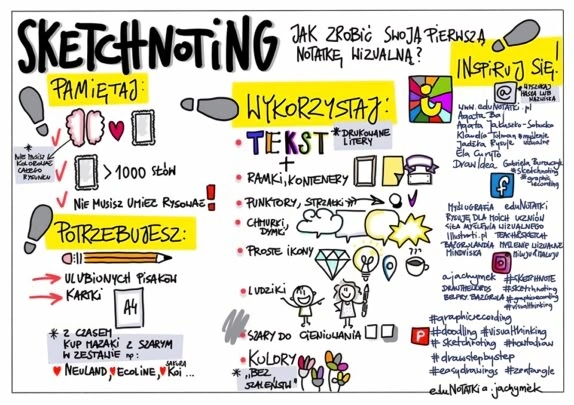 SKETCHNOTING
JAK ZROBIĆ SWOJĄ PIERWSZĄ
NOTATKĘ WIZUALNĄ?
PAMIĘTAJ:
* NIE MUSISZ
KOLOROWAĆ
CAŁEGO
RYSUNKU
> 1000 SŁÓW
NIE MUSISZ UMIEĆ RYSOWAĆ!
POTRZEBUJESZ:
ULUBIONYCH PISAKÓW
KARTKI
A4
* Z CZASEM
KUP MAZAKI Z SZARYM
W ZESTAWIE np:
NEULAND, ECOLINE, SAKURA KOI ...
WYKORZYSTAJ:
TEKST
* DRUKOWANE
LITERY
+
RAMKI, KONTENERY
PUNKTORY, STRZAŁKI
CHMURKI,
DYMKI
PROSTE IKONY
LUDZIKI
SZARY DO CIENIOWANIA
KOLORY
* "BEZ
SZALEŃSTW"
INSPIRUJ SIĘ!
@
* WYSZUKAJ
HASŁA LUB
NAZWISKA
www.eduNOTATKI.pl
Agata Baj
Agata Jakuszko-Sobocka
Klaudia Tolman
Jadźka Rysuje
Ela Curyło
Draw Idea
Gabriela Borowczyk
#sketchnoting
#graphic
recording
MYŚLOGRAFIA eduNOTATKI
RYSUJĘ DLA MOICH UCZNIÓW
SIŁA MYŚLENIA WIZUALNEGO
BAZGROLANDIA MYŚLENIE WIZUALNE
MINDVISKA
ajachymek
#SKETCHNOTE
#sketchnoting
#graphicrecording
#visualthinking
#graphicrecording
#doodling #visualthinking
#sketchnoting #howtodraw
#drawstepbystep
#easydrawings #zentangle
eduNOTATKI a.jachymek